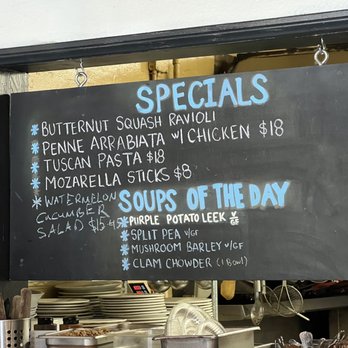 SPECIALS
* BUTTERNUT SQUASH RAVIOLI
* PENNE ARRABIATA w/ CHICKEN $18
* TUSCAN PASTA $18
* MOZARELLA STICKS $8
* WATERMELON
CUCUMBER
SALAD $15
SOUPS OF THE DAY
* PURPLE POTATO LEEK V/GF
* SPLIT PEA V/GF
* MUSHROOM BARLEY V/GF
* CLAM CHOWDER (1 Bowl)